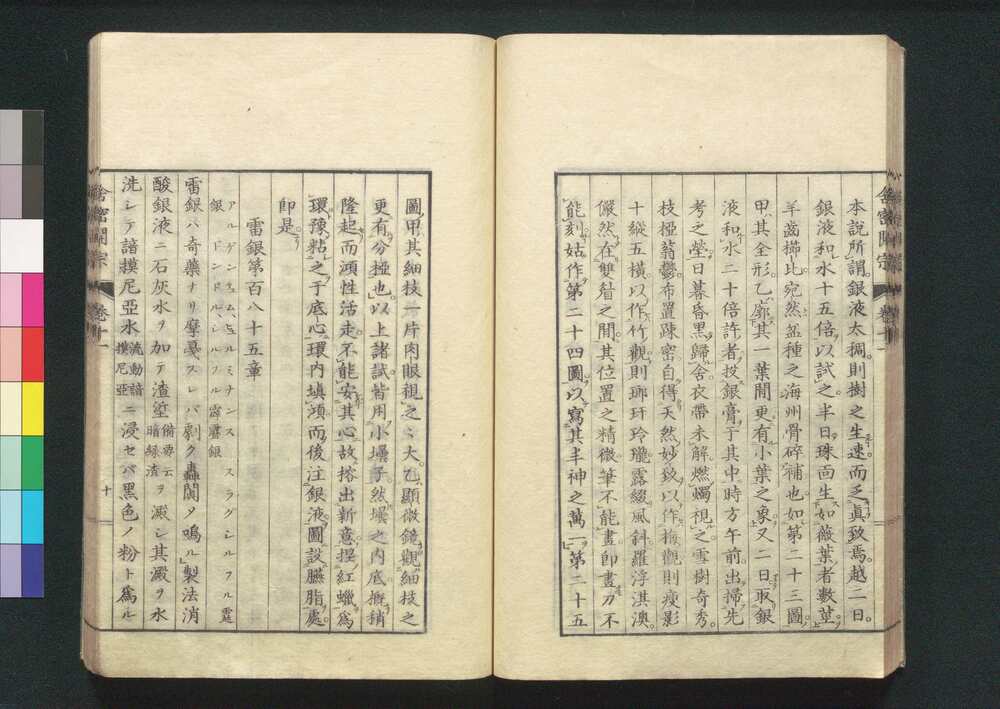 本說所謂銀液太稠則樹之生速而乏眞致焉越二日
銀液和水十五倍以試之半日珠面生如薇葉者數莖
羊齒櫛比宛然盆種之海州骨碎補也如第二十三圖
甲其全形乙廓其一葉閒更有小葉之象又二日取銀
液和水二十倍許者投銀膏于其中時方午前出掃先
考之塋日暮昏黑歸舍衣帶未解燃燭視之雪樹奇秀
枝椏蓊鬱布置疎密自得天然妙致以作梅觀則瘦影
十縱五橫以作竹觀則瑯玕玲瓏露綴風斜羅浮淇澳
儼然在雙眥之閒其位置之精微筆不能畫卽畫刀不
能刻姑作第二十四圖以寫其半神之萬一第二十五
圖甲其細枝一片肉眼視之之大乙顯微鏡觀細枝之
更有分椏也以上諸試皆用小壜子然壜之内底撫捎
隆起而澒性活走不能安其心故搭出新意捏紅蠟爲
環豫粘之于底心環内塡澒而後注銀液圖設臙脂處
卽是
雷銀第百八十五章
アルゲンチュム、ヒュルミナンス スラグシルフル 霆銀
ドンドルシルフル 霹靂銀
雷銀ハ奇藥ナリ摩戛スレバ劇ク轟鬭ヲ鳴ル製法消
酸銀液ニ石灰水ヲ加テ渣滓 備考云暗綠渣 ヲ澱シ其澱ヲ水
洗シテ諳摸尼亞水 流動諳摸尼亞 ニ浸セバ黑色ノ粉ト爲ル
舍密開宗 卷十一
十
舍密開宗 卷十一